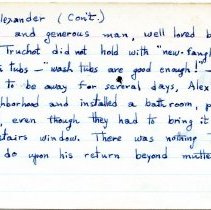 lexander (Con't.)
and generous man, well loved b
Truchot did not hold with "new-fang
tubs - "wash tubs are good enough!"
to be away for several days, Alex
hborhood and installed a bathroom, p
, even though they had to bring it
stairs window. There was nothing T
do upon his return beyond mutte